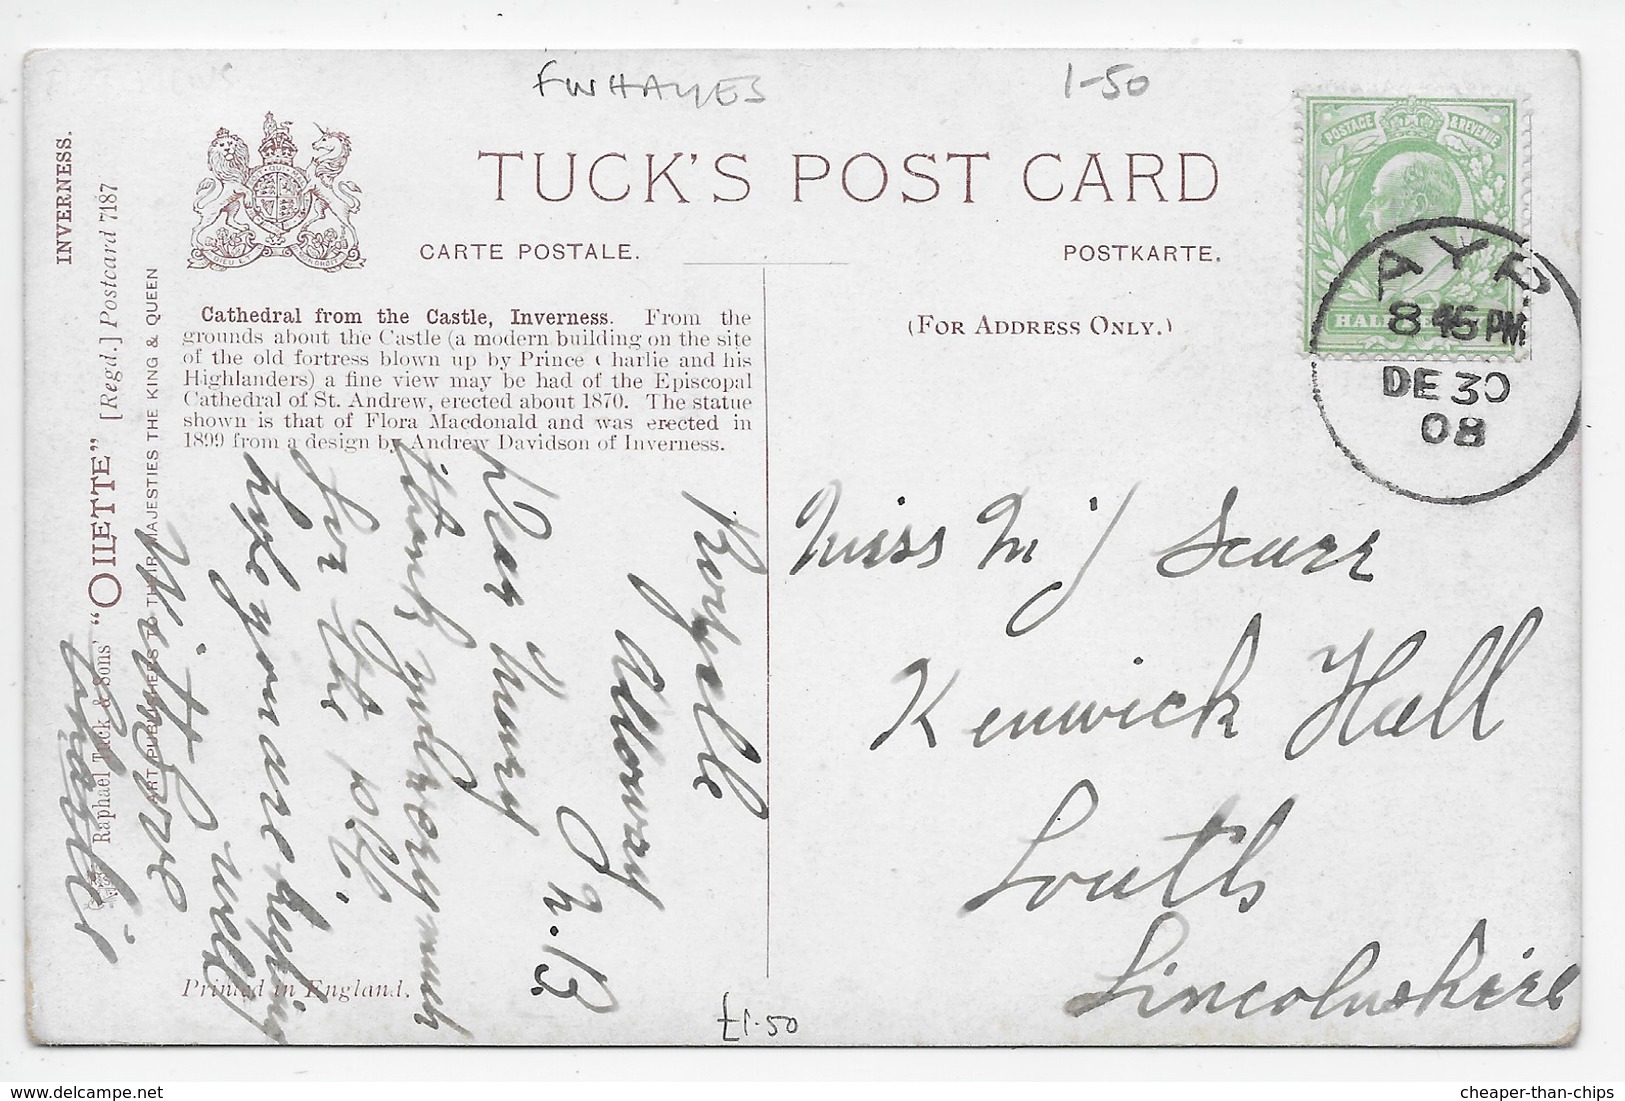 FW HAYES
1-50
TUCK'S POST CARD
CARTE POSTALE.
POSTKARTE.
(FOR ADDRESS ONLY.)
POSTAGE & REVENUE
HALF
AYR
8 45 PM
DE 30
08
INVERNESS.
Raphael Tuck & Sons' "OILETTE" [Regd.] Postcard 7187
ART PUBLISHERS TO THEIR MAJESTIES THE KING & QUEEN
DIEU ET MON DROIT
Cathedral from the Castle, Inverness. From the
grounds about the Castle (a modern building on the site
of the old fortress blown up by Prince Charlie and his
Highlanders) a fine view may be had of the Episcopal
Cathedral of St. Andrew, erected about 1870. The statue
shown is that of Flora Macdonald and was erected in
1899 from a design by Andrew Davidson of Inverness.
Alloway
N.B.
Dear
thank you very much
for the p.c.
hope you are keeping
well
With love
Miss M J Scurr
Kenwick Hall
Louth
Lincolnshire
Printed in England.
£1.50
delcampe.net
cheaper-than-chips